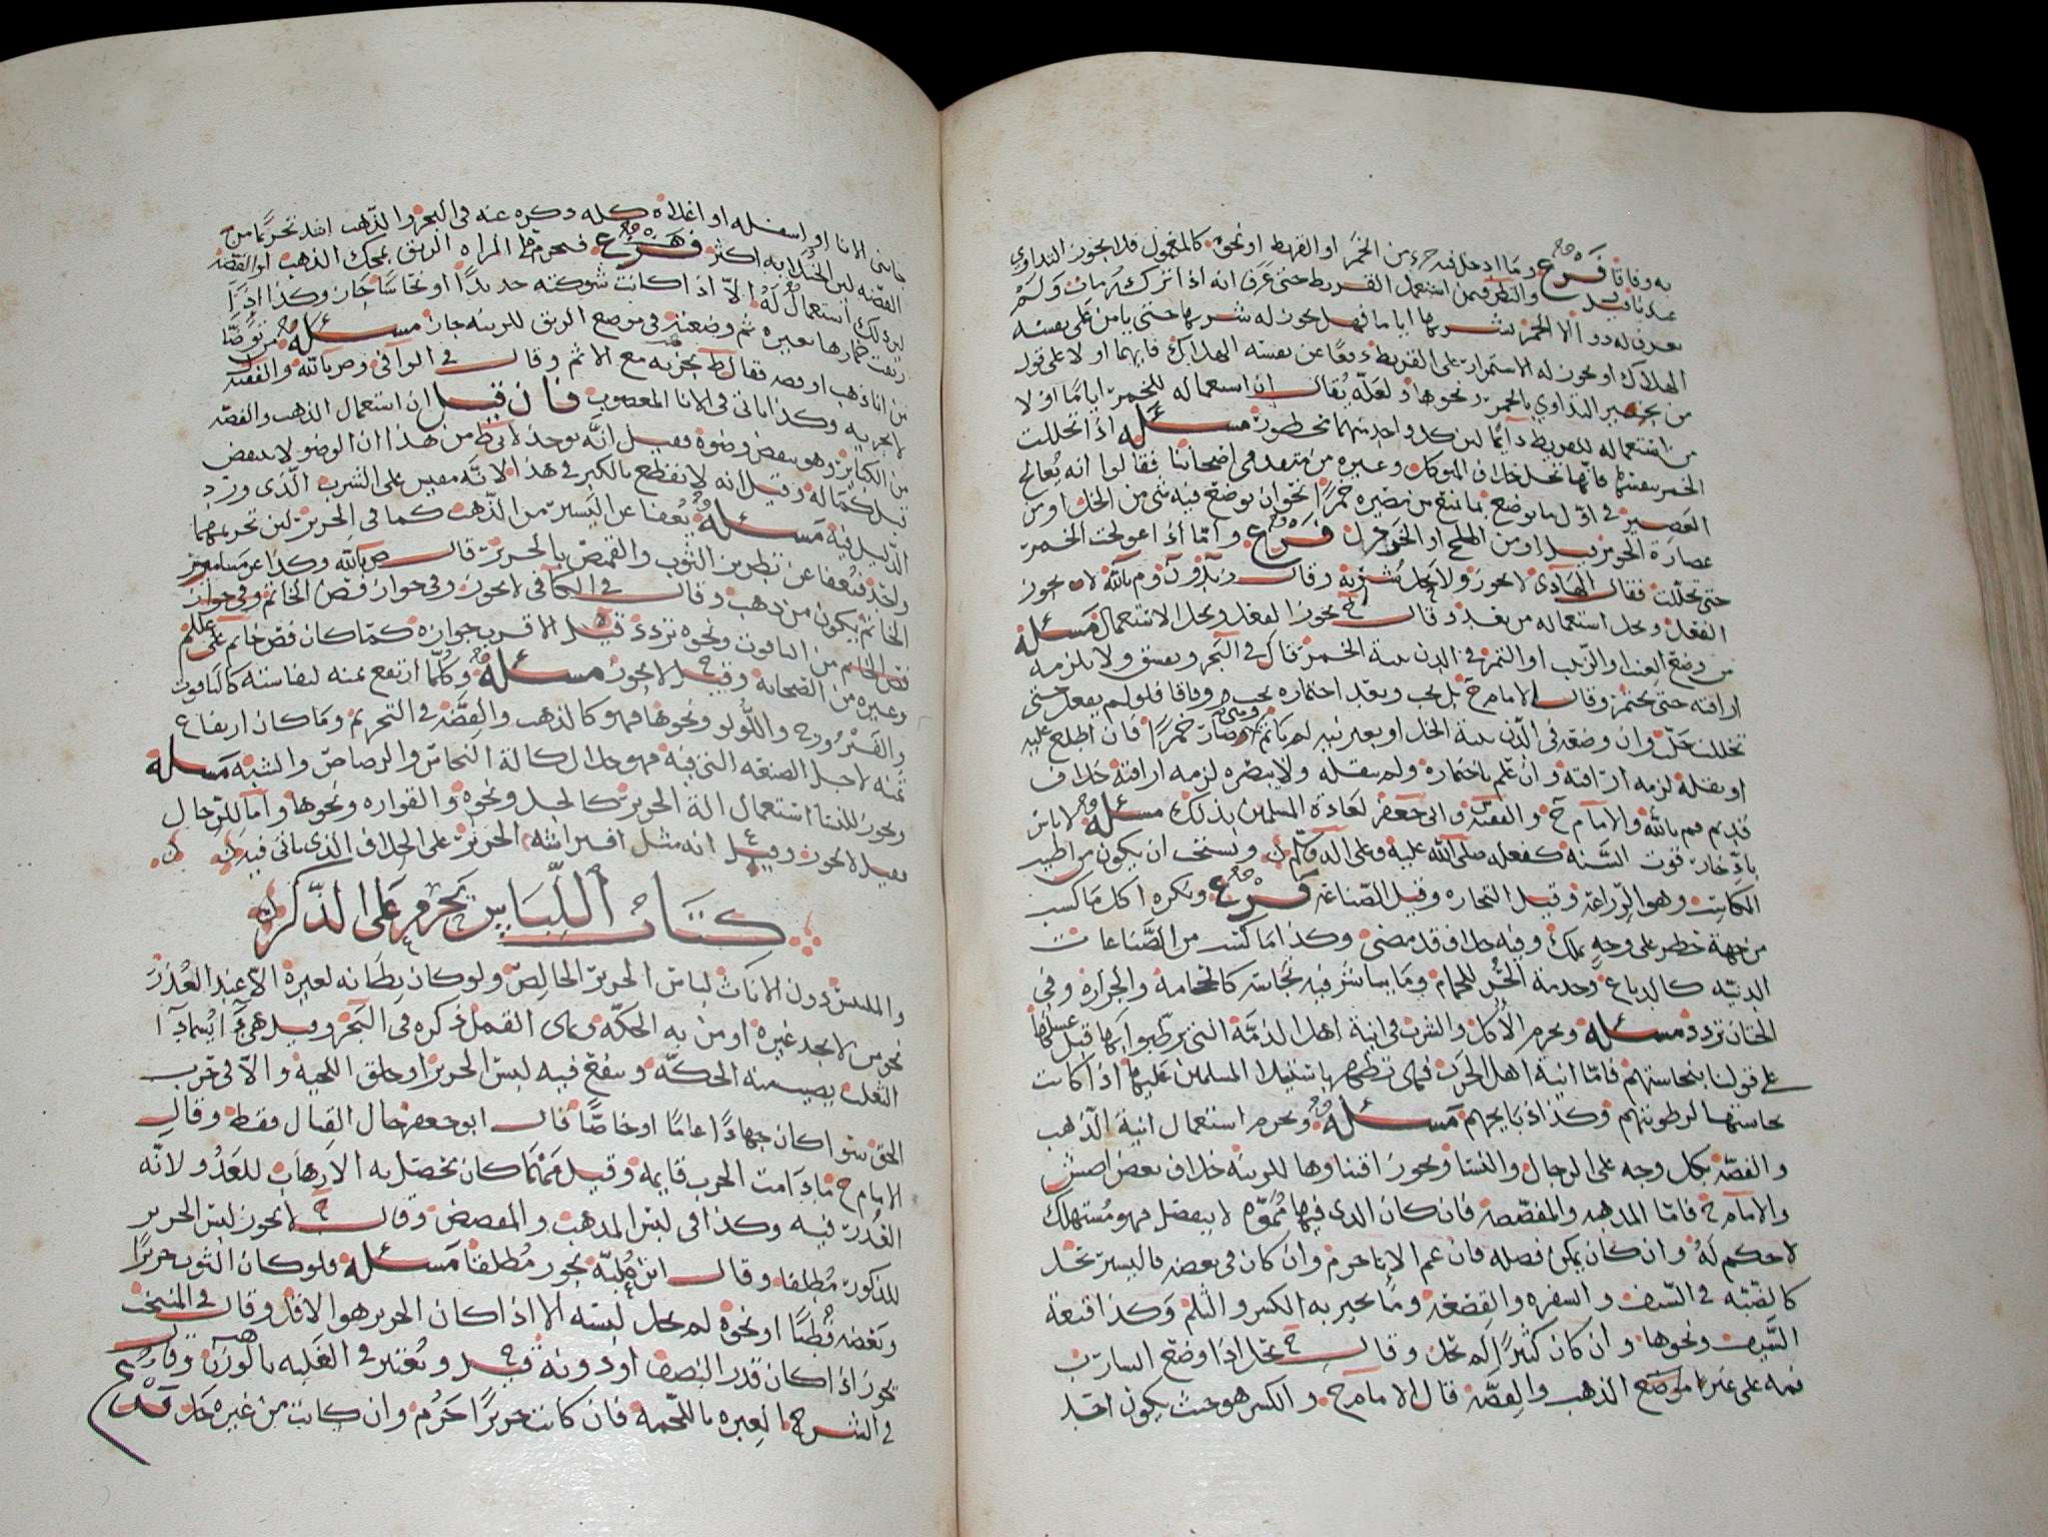 به وفاقا فرع وما ادخل فيه جزء من الخمر او القريط او نحوه كالمغمول فلا يجوز التداوي
والنظر فيمن استعمل القريط حتى عرف انه اذا تركه مات ولم
يعرف له دوا الا الخمر شربها اياما فهل يجوز له شربها حتى يامن على نفسه
الهلاك او يجوز له الاستمرار على القريط دفعا عن نفسه الهلاك فايهما اولا على قول
من يجيز التداوي بالخمر ونحوها ولعله يقال ان استعماله للخمر اياما اولا
من استعماله للقريط دايما لان كل واحد منهما محظور مسئله اذا تخللت
الخمر بنفسها فانها تحل خلاف المتوكل وغيره من متقدمي اصحابنا فقالوا انه يعالج
العصير في اول ما يوضع بما يمنع من مصيره خمرا نحو ان يوضع فيه شي من الخل او من
عصارة او من الملح او الخردل فرع واما اذا عولجت الخمر
حتى تخللت فقال الهادي لا يجوز ولا يحل شربه وقال لا يجوز
الفعل ويحل استعماله من بعد وقال ح يجوز الفعل ويحل الاستعمال مسئله
من وضع العنب او الزبيب او التمر في الدن بنية الخمر قال في البحر ويفسق ولا يلزمه
اراقته حتى يختمر وقال الامام ح بل يجب وبعد اختماره يجب وفاقا فلو لم يفعل حتى
تخلل حل وان وضعه في الدن بنية الخل او بغير نيه لم ياثم ومتى صار خمرا فان اطلع عليه
او بقله لزمه اراقته وان علم باختماره ولم ينقله ولا يبصره لزمه اراقته خلاف
قديم م بالله والامام ح والفقيه وابي جعفر لعادة المسلمين بذلك مسئله لا باس
بادخار قوت السنه كفعله صلى الله عليه وعلى اله وسلم ويستحب ان يكون من اطيب
المكاسب وهو الزراعة وقيل التجاره وقيل الصناعة فرع ويكره اكل ما كسب
من جهة خطر على وجه يملك وفيه خلاف قد مضى وكذا ما كسب من الصناعات
الدنيه كالدباغ وخدمة الحمام وما يباشر فيه نجاسة كالحجامه والجزاره وفي
الختان تردد مسئله ويحرم الاكل والشرب في انية اهل الذمة التي ترطبوا بها قبل غسلها
على قولنا بنجاستهم فاما انية اهل الحرب فهي تطهر باستيلا المسلمين عليها اذا كانت
نجاستها لرطوبتهم وكذا ذبايحهم مسئله ويحرم استعمال انية الذهب
والفضة بكل وجه على الرجال والنسا ويجوز اقتناوها للزينه خلاف بعض اصش
والامام ح فاما المذهبه والمفضضه فان كان الذي فيها مموه لا ينفصل فهو مستهلك
لا حكم له وان كان يمكن فصله فان عم الانا حرم وان كان في بعضه فاليسير يحل
كالضبه في السيف والشفره والقصعه وما يجبر به الكسر والثلم وكذا قبيعة
السيف ونحوها وان كان كثيرا لم يحل وقال ح يحل اذا وضع الشارب
فمه على غير موضع الذهب والفضه قال الامام ح والكسر هو حيث يكون احد
جانبي الانا او اسفله او اعلاه كله وذكره عنه في البحر والذهب اشد تحريما من
الفضه لان الخيلا به اكثر فرع فيحرم على المراه الريق بمحك الذهب او الفضه
لان ذلك استعمال له الا اذا كانت شوكته حديدا او نحاسا جاز وكذا اذا
ريقت خمارها بغيره ثم وضعته في موضع الريق للزينه جاز مسئله من توضا
من انا ذهب او فضه فقال ط يجزيه مع الاثم وقال في الوافي وص بالله والفقيه
لا يجزيه وكذا ياتي في الانا المغصوب فان قيل ان استعمال الذهب والفضه
من الكبائر وهو ينقض وضوه فقيل انه يوخذ لابي ط من هذا ان الوضو لا ينقض
قبل كماله وقيل انه لا نقطع بالكبر في هذا لانه مقيس على الشرب الذي ورد
الدليل فيه مسئله يعفا عن اليسير من الذهب كما في الحرير لان تحريمهما
واحد فيعفا عن تطريز الثوب والقميص بالحرير قال ص بالله وكذا عن مسامير
الخاتم يكون من ذهب وقال في الكافي لا يجوز وفي جواز فص الخاتم وفي جواز
فص الخاتم من الياقوت ونحوه تردد قيل الاقرب جوازه كما كان فص خاتم علي عليلم
وغيره من الصحابه وقيل لا يجوز مسئله وكلما ارتفع ثمنه لنفاسته كالياقوت
والفيروزج واللولو ونحوها فهو كالذهب والفضه في التحريم وما كان ارتفاع
ثمنه لاجل الصنعه التي فيه فهو حلال كالة النحاس والرصاص والشبه مسئله
ويجوز للنسا استعمال الة الحرير كالحبل ونحوه والقواره ونحوها واما للرجال
فقيل لا يجوز وقيل انه مثل افتراشه الحرير على الخلاف الذي ياتي فيه
كتاب اللباس يحرم على الذكر
والملبس دون الاناث لباس الحرير الخالص ولو كان بطانه لغيره الا عند العذر
نحو من لا يجد غيره او من به الحكه وهي القمل ذكره في البحر وقيل هي
ويبيح فيه لبس الحرير او حلق اللحيه والا في حرب
الحق سوا كان جهادا عاما او خاصا قال ابو جعفر حال القتال فقط وقال
الامام ح ما دامت الحرب قايمه وقيل مهما كان يحصل به الارهاب للعدو لانه
الغدر فيه وكذا في لبس المذهب والمفضض وقال ح لا يجوز لبس الحرير
للذكور مطلقا وقال ابن علية يجوز مطلقا مسئله فلو كان الثوب حريرا
وبعضه قطنا او نحوه لم يحل لبسه الا اذا كان الحرير هو الاقل وقال في المنتخب
يجوز اذا كان قدر النصف او دونه قيل ويعتبر في الغلبه بالوزن وقال
في الشرح العبره باللحمه فان كانت حريرا حرم وان كانت من غيره حل